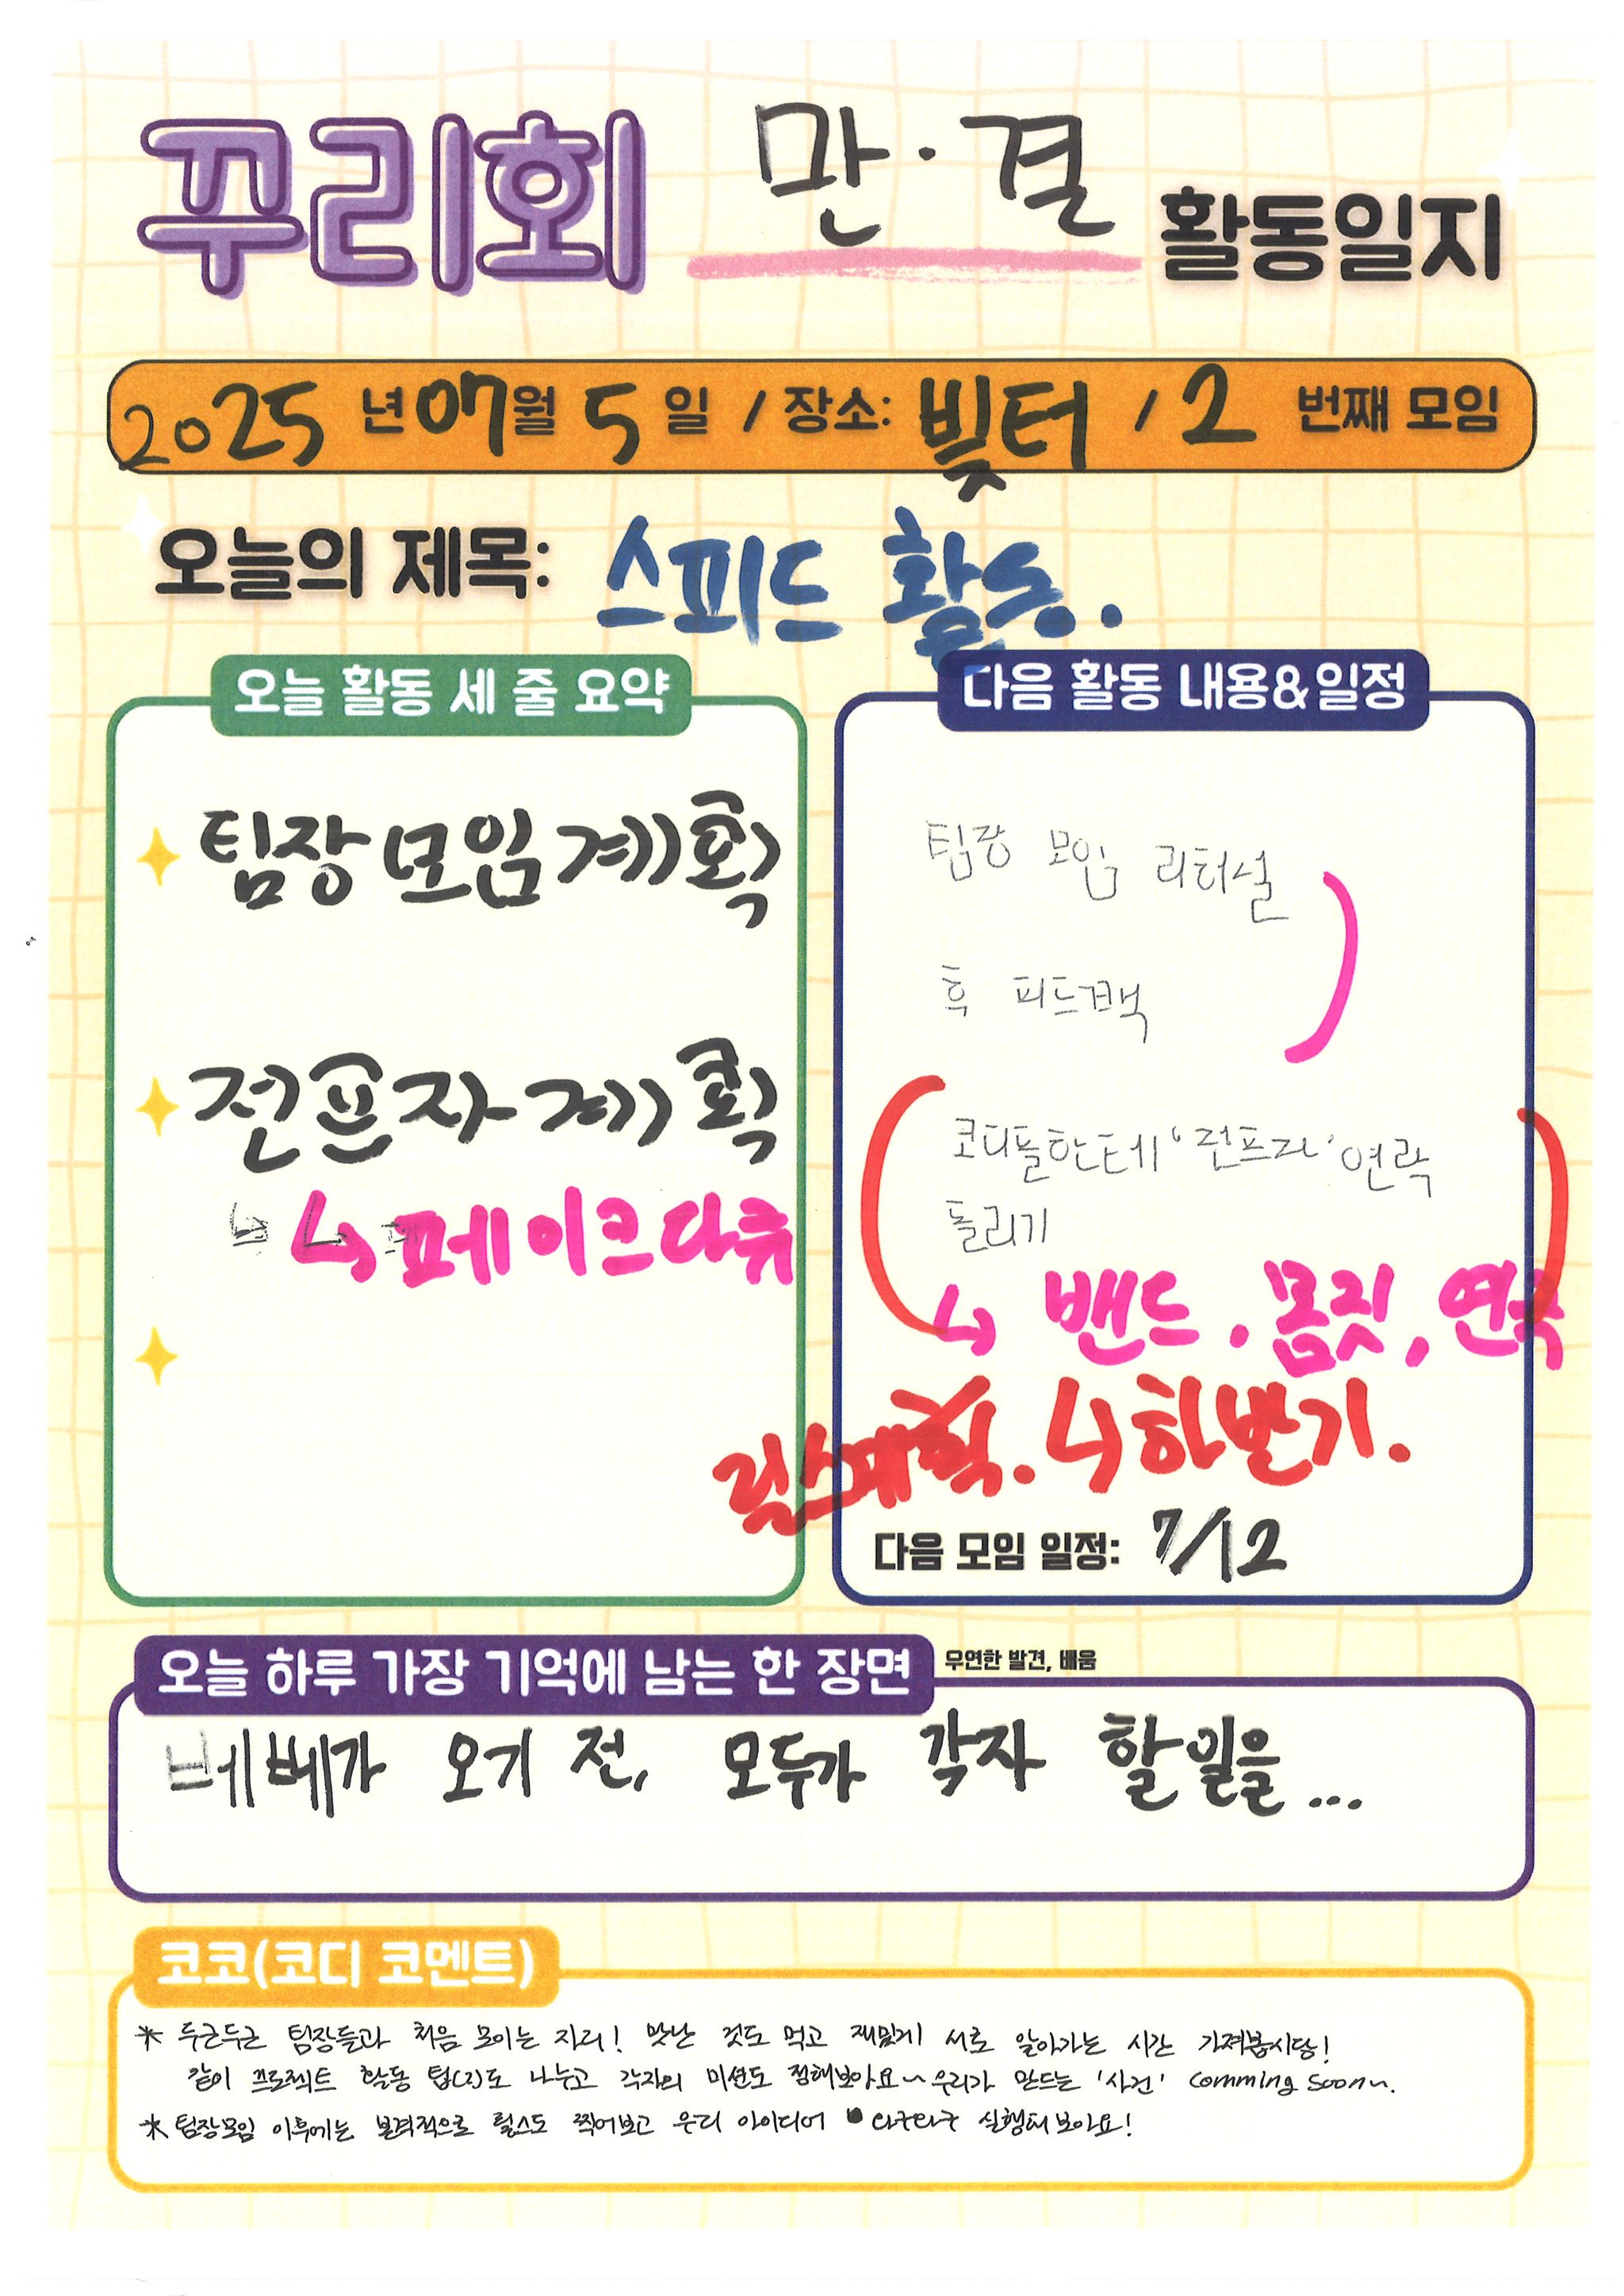 꾸리회 만·결 활동일지
2025년 07월 5일 / 장소: 빛터 / 2 번째 모임
오늘의 제목: 스피드 활동.
오늘 활동 세 줄 요약
팀장모임계획
전프자계획
↳ 페이크다큐
다음 활동 내용&일정
팀장 모임 리허설
후 피드백
코디들한테 '전프자' 연락
돌리기
↳ 밴드, 몸짓, 연극
릴스계획. 나눠받기.
다음 모임 일정: 7/12
오늘 하루 가장 기억에 남는 한 장면 우연한 발견, 배움
베베가 오기 전, 모두가 각자 할 일을...
코코(코디 코멘트)
* 두근두근 팀장들과 처음 모이는 자리! 맛난 것도 먹고 재밌게 서로 알아가는 시간 가져봅시당!
같이 프로젝트 활동 팁(?)도 나누고 각자의 미션도 정해보아요~ 우리가 만드는 '사건' comming soon~.
* 팀장모임 이후에는 본격적으로 릴스도 찍어보고 우리 아이디어 다근다근 실행해보아요!